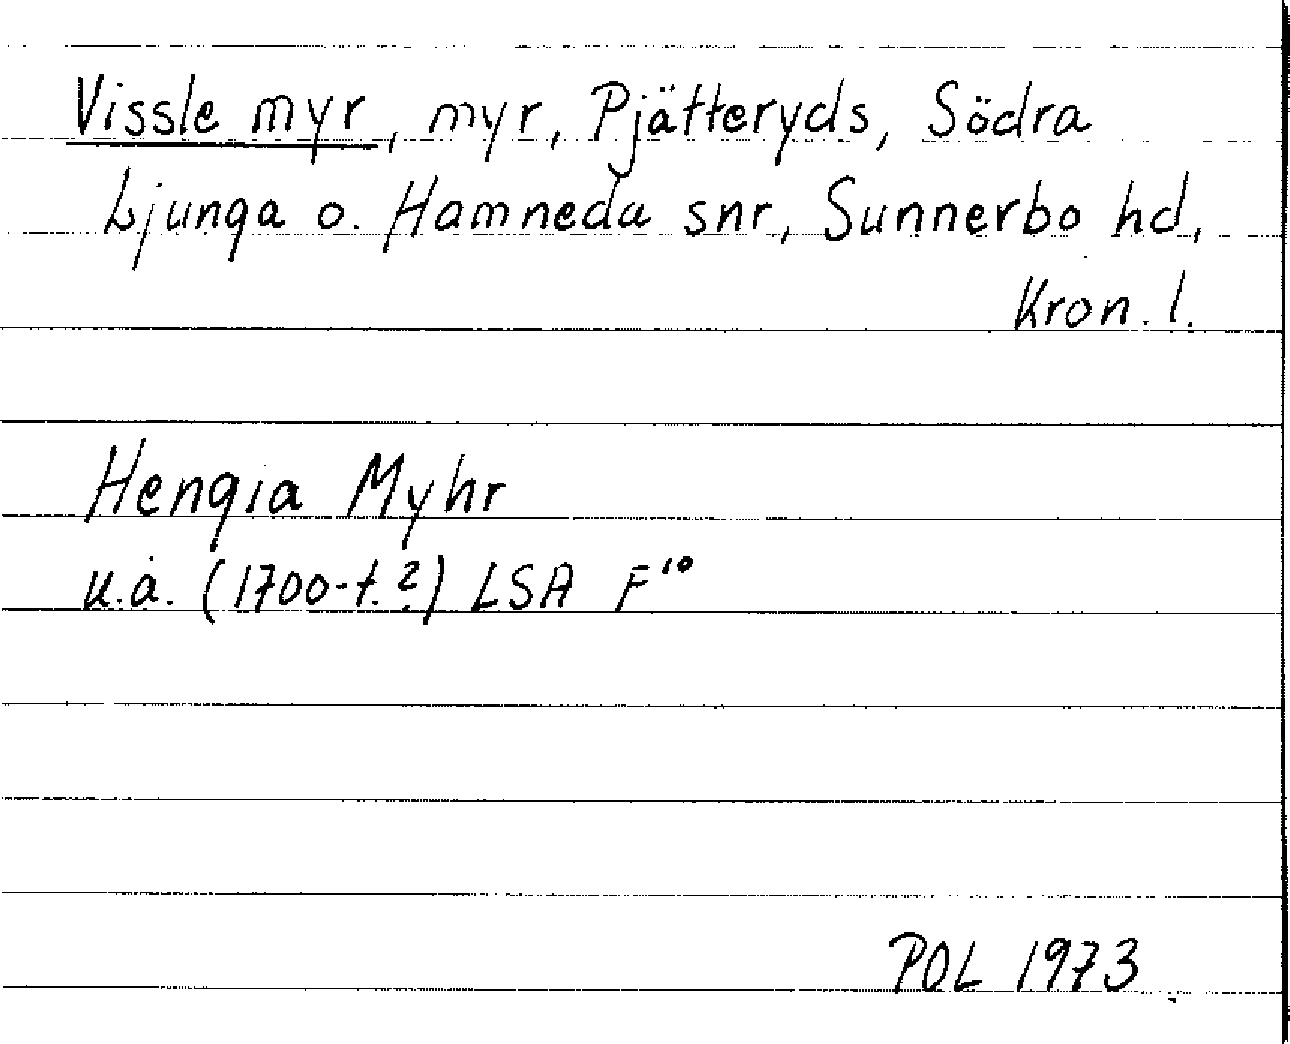 Vissle myr, myr, Pjätteryds, Södra
Ljunga o. Hamneda snr, Sunnerbo hd,
Kron. l.
Hengia Myhr
u.å. (1700-t.?) LSA F¹⁰
POL 1973